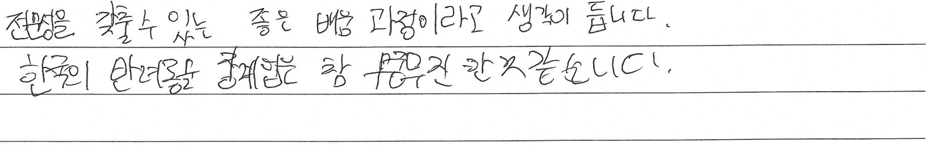 전문성을 갖출 수 있는 좋은 배움 과정이라고 생각이 듭니다.
한국의 반려동물 관계법은 참 무궁무진 한 것 같습니다.